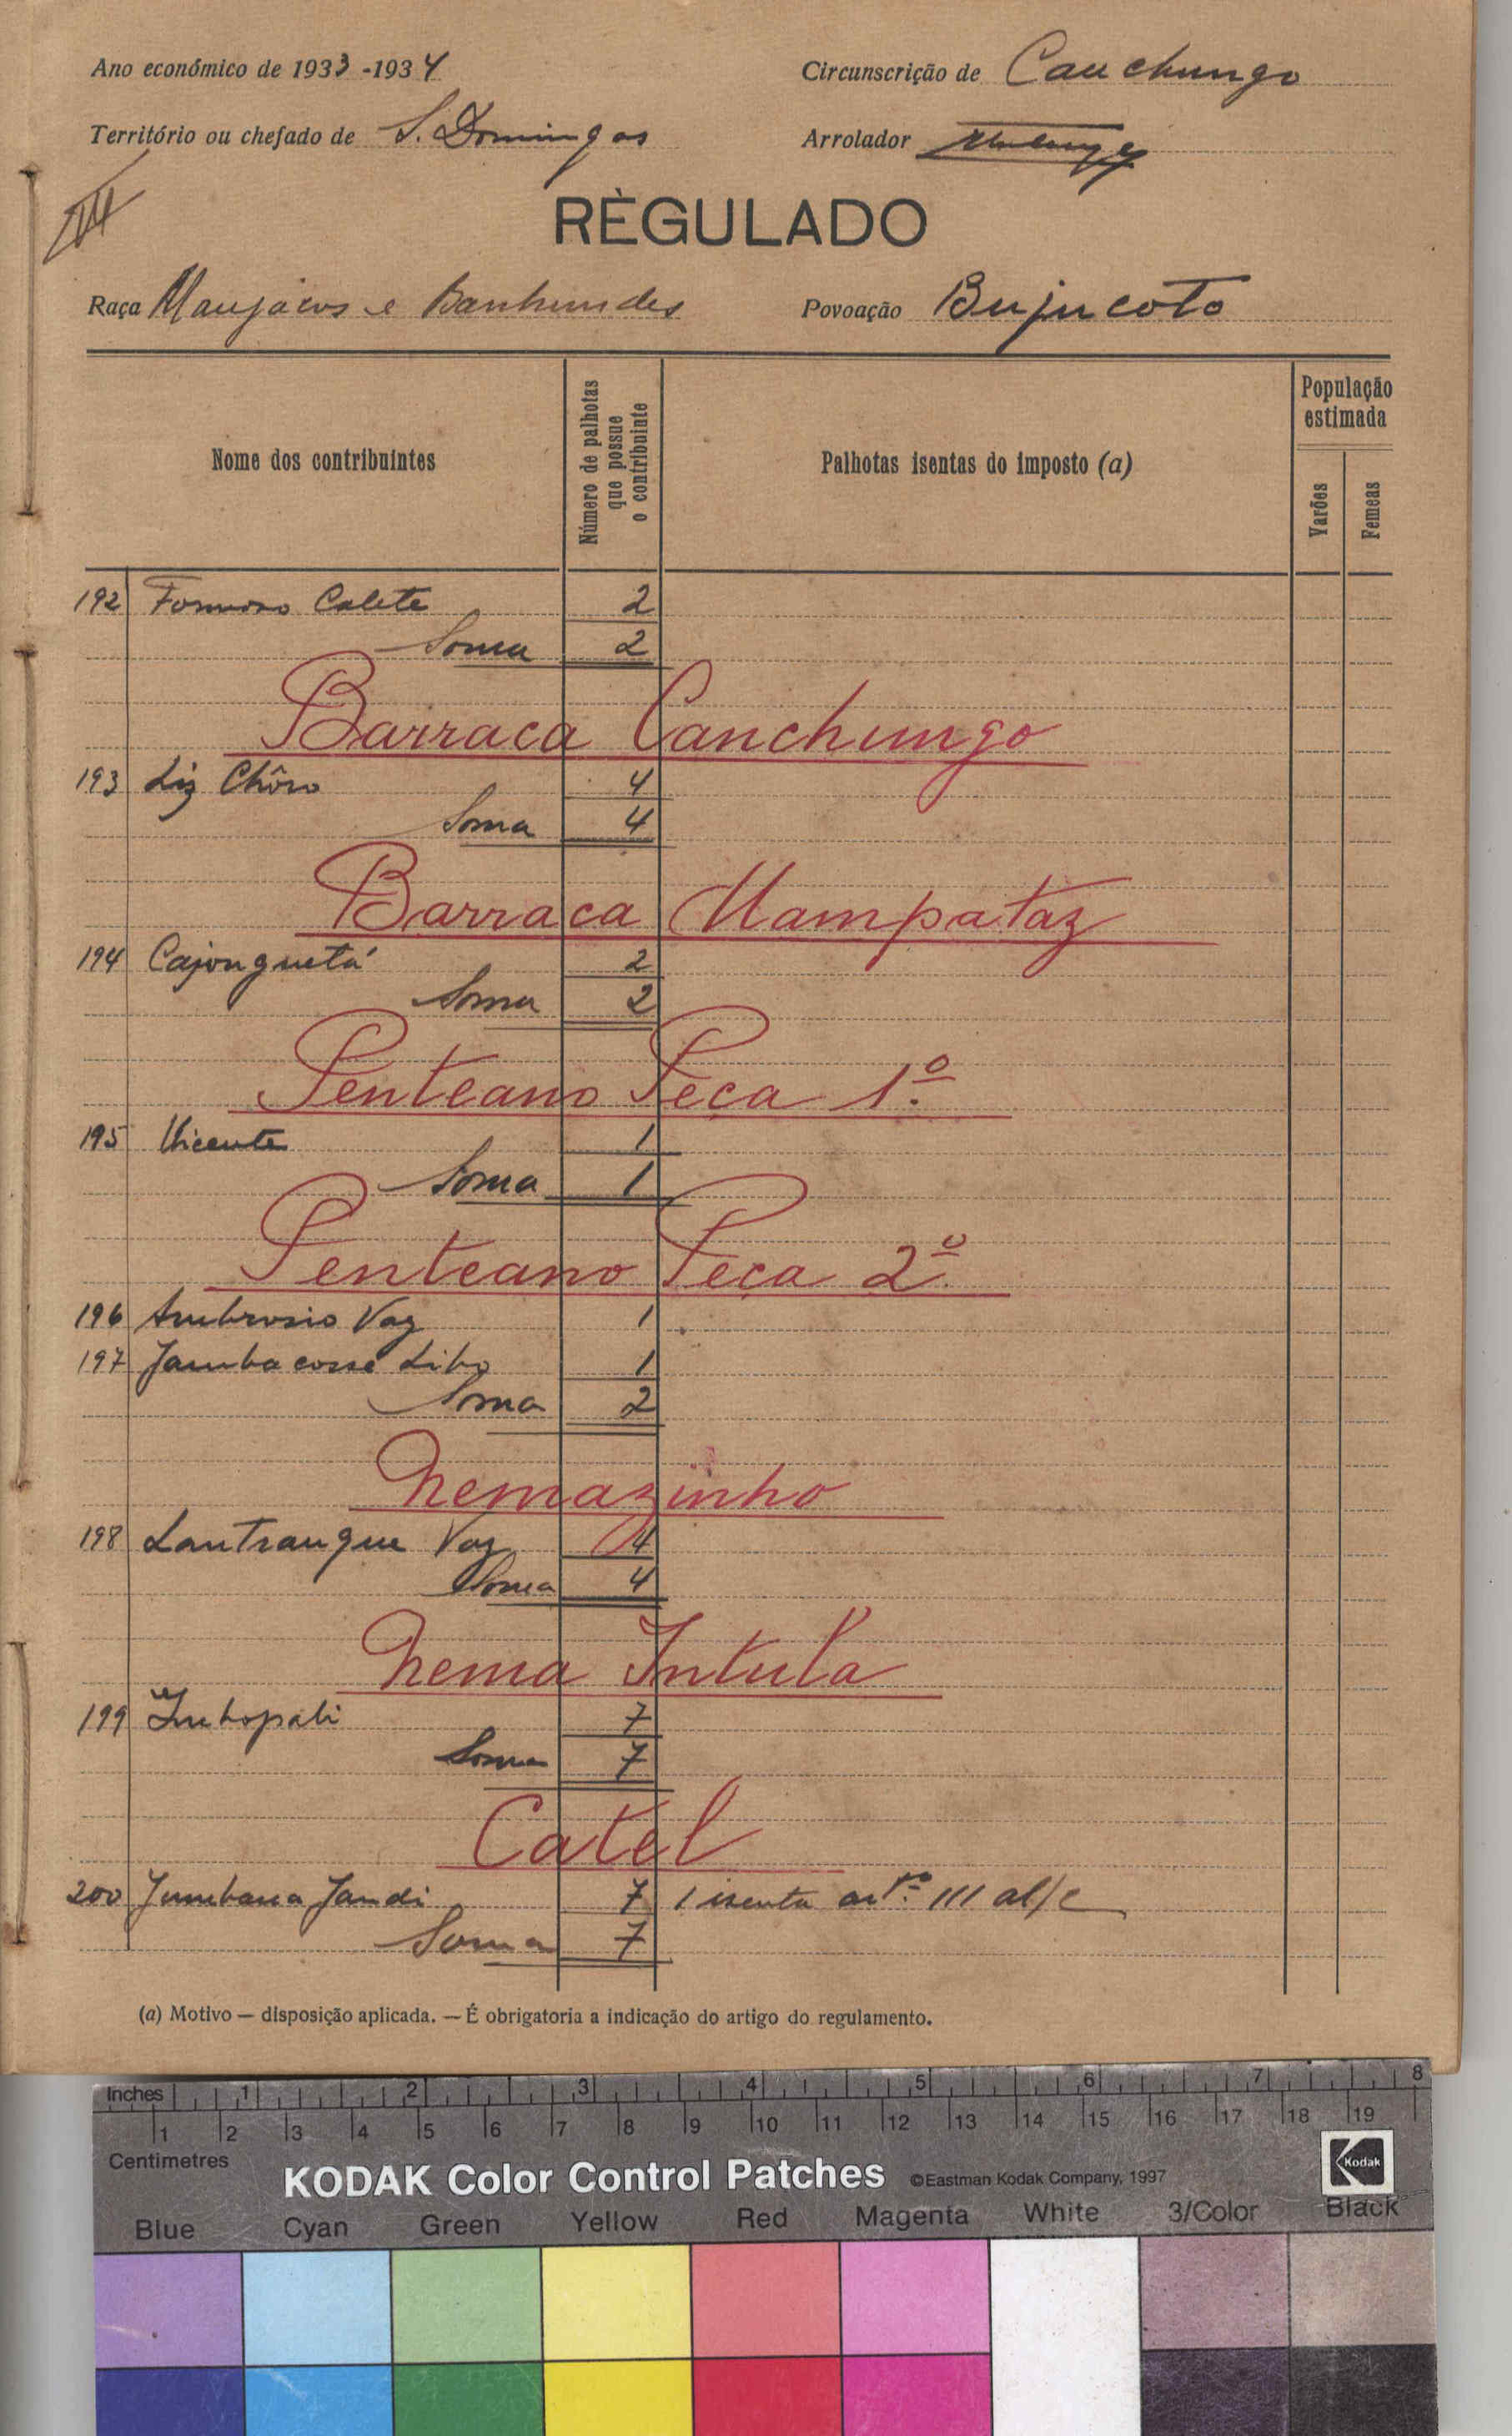 Ano económico de 1933-1934 Circunscrição de Canchungo
Território ou chefado de S. Domingos Arrolador
RÈGULADO
Raça Manjacos e Banhundes Povoação Bujucoto
Nome dos contribuintes
Número de palhotas que possue o contribuinte
Palhotas isentas do imposto (a)
População estimada
Varões
Femeas
192 Formoso Calete 2
Soma 2
Barraca Canchungo
193 Liz Chôro 4
Soma 4
Barraca Mampataz
194 Cajonguetá 2
Soma 2
Penteano Peca 1º
195 Vicente 1
Soma 1
Penteano Peca 2º
196 Ambrosio Vaz 1
197 Jamba cossé Libo 1
Soma 2
Nemazinho
198 Lantranque Vaz 4
Soma 4
Nema Intula
199 7
Soma 7
Catel
200 Jumbana Jandi 7 1 isenta artº 111 al/c
Soma 7
(a) Motivo — disposição aplicada. — É obrigatoria a indicação do artigo do regulamento.
Inches 1 2 3 4 5 6 7 8
1 2 3 4 5 6 7 8 9 10 11 12 13 14 15 16 17 18 19
Centimetres
KODAK Color Control Patches ©Eastman Kodak Company, 1997 Kodak
Blue Cyan Green Yellow Red Magenta White 3/Color Black